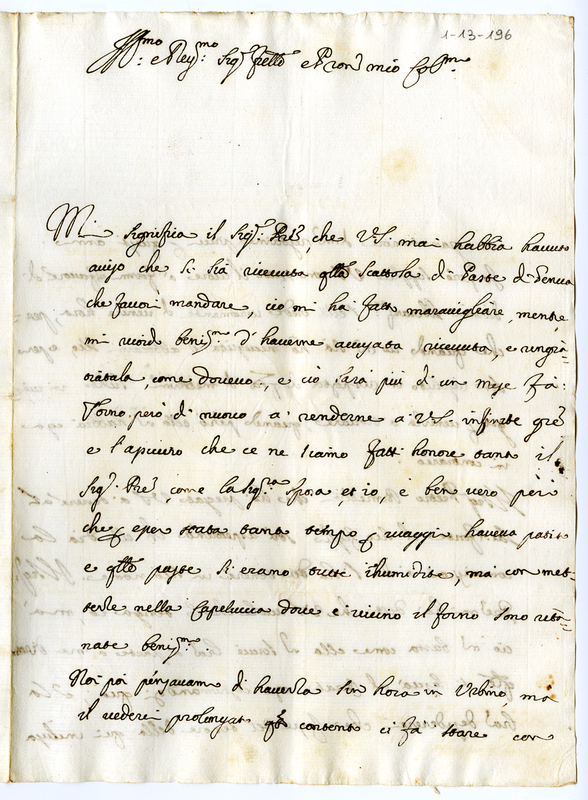 1-13-196
Ill.mo e Rev.mo Sig.r fratello e Pron mio Col.mo
Mi significa il Sig.r Pre, che VS. mai habbia havuto
aviso che si sia ricevuta qlla scattola di Paste di Genua
che favorì mandare, ciò mi ha fatt maravigliare, mentre
mi ricord beniss.mo d'haverne avvisata ricevuta, e ringra=
tiatala, come dovevo, e ciò sarà più di un mese fa:
Torno però di nuovo a renderne a VS. infinite gre
e l'assicuro che ce ne siamo fatti honore tanto il
Sig.r Pre, come la Sig.ra sposa, et io, e ben vero però
che p esser stata tanto tempo p viaggi haveva patito
e qlle paste si erano tutte ihumidite, ma con met=
terle nella Capeluccia dove e vicino il forno sono ritor=
nate beniss.mo.
Noi poi pensavam di haverla sin hora in Urbino, ma
il vedere prolongat qto contento ci fa stare con